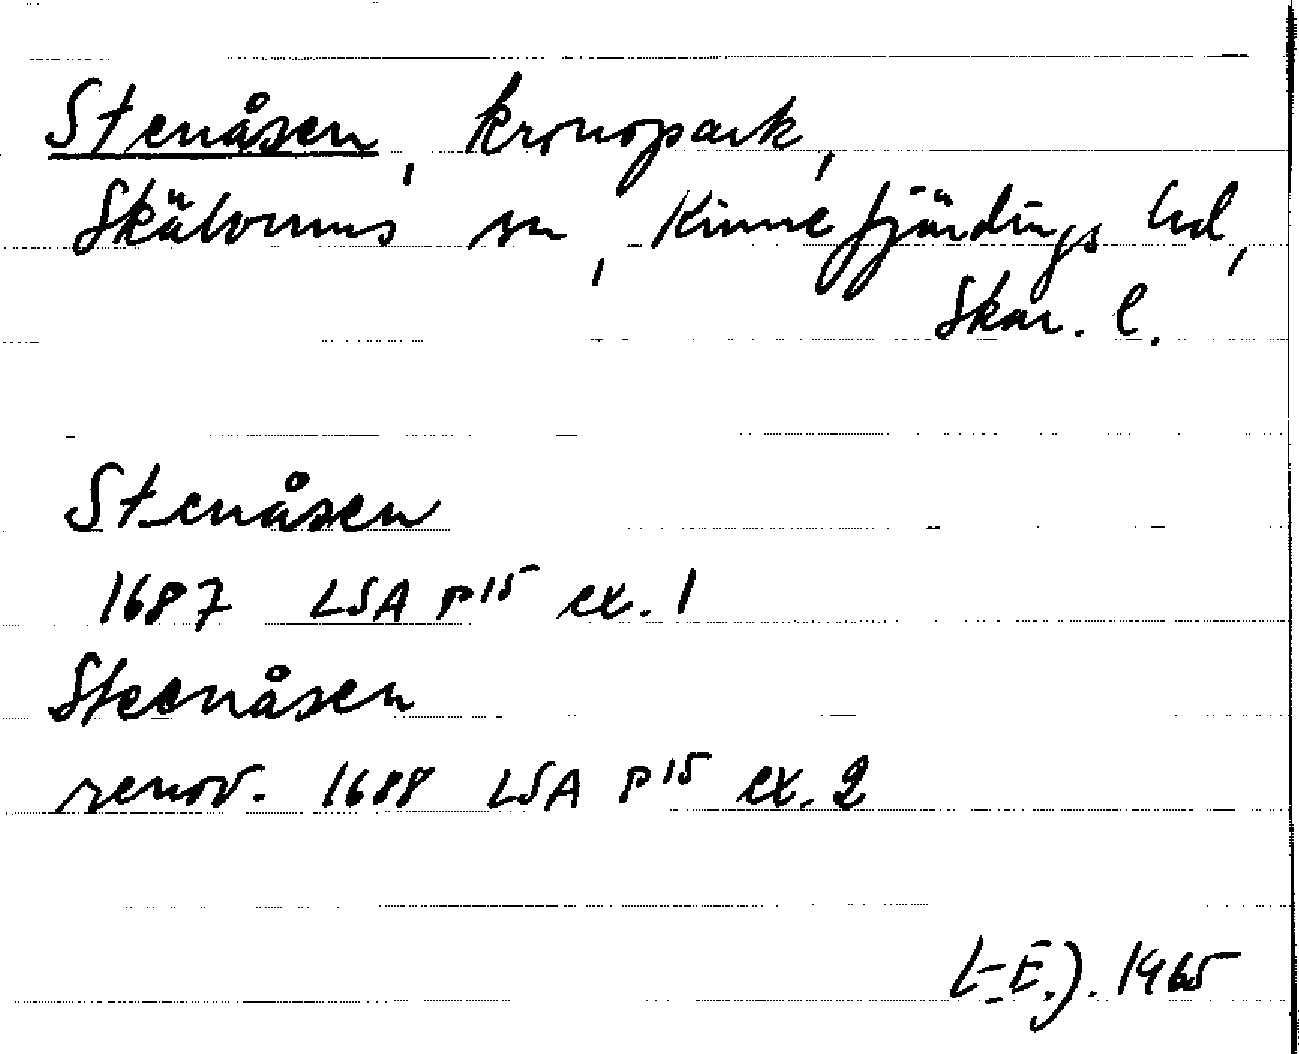 Stenåsen, kronopark,
Skälvums sn, Kinnefjärdings hd,
Skar. l.
Stenåsen
1687 LSA P15 ex. 1
Steenåsen
renov. 1688 LSA P15 ex. 2
L-E.J. 1965